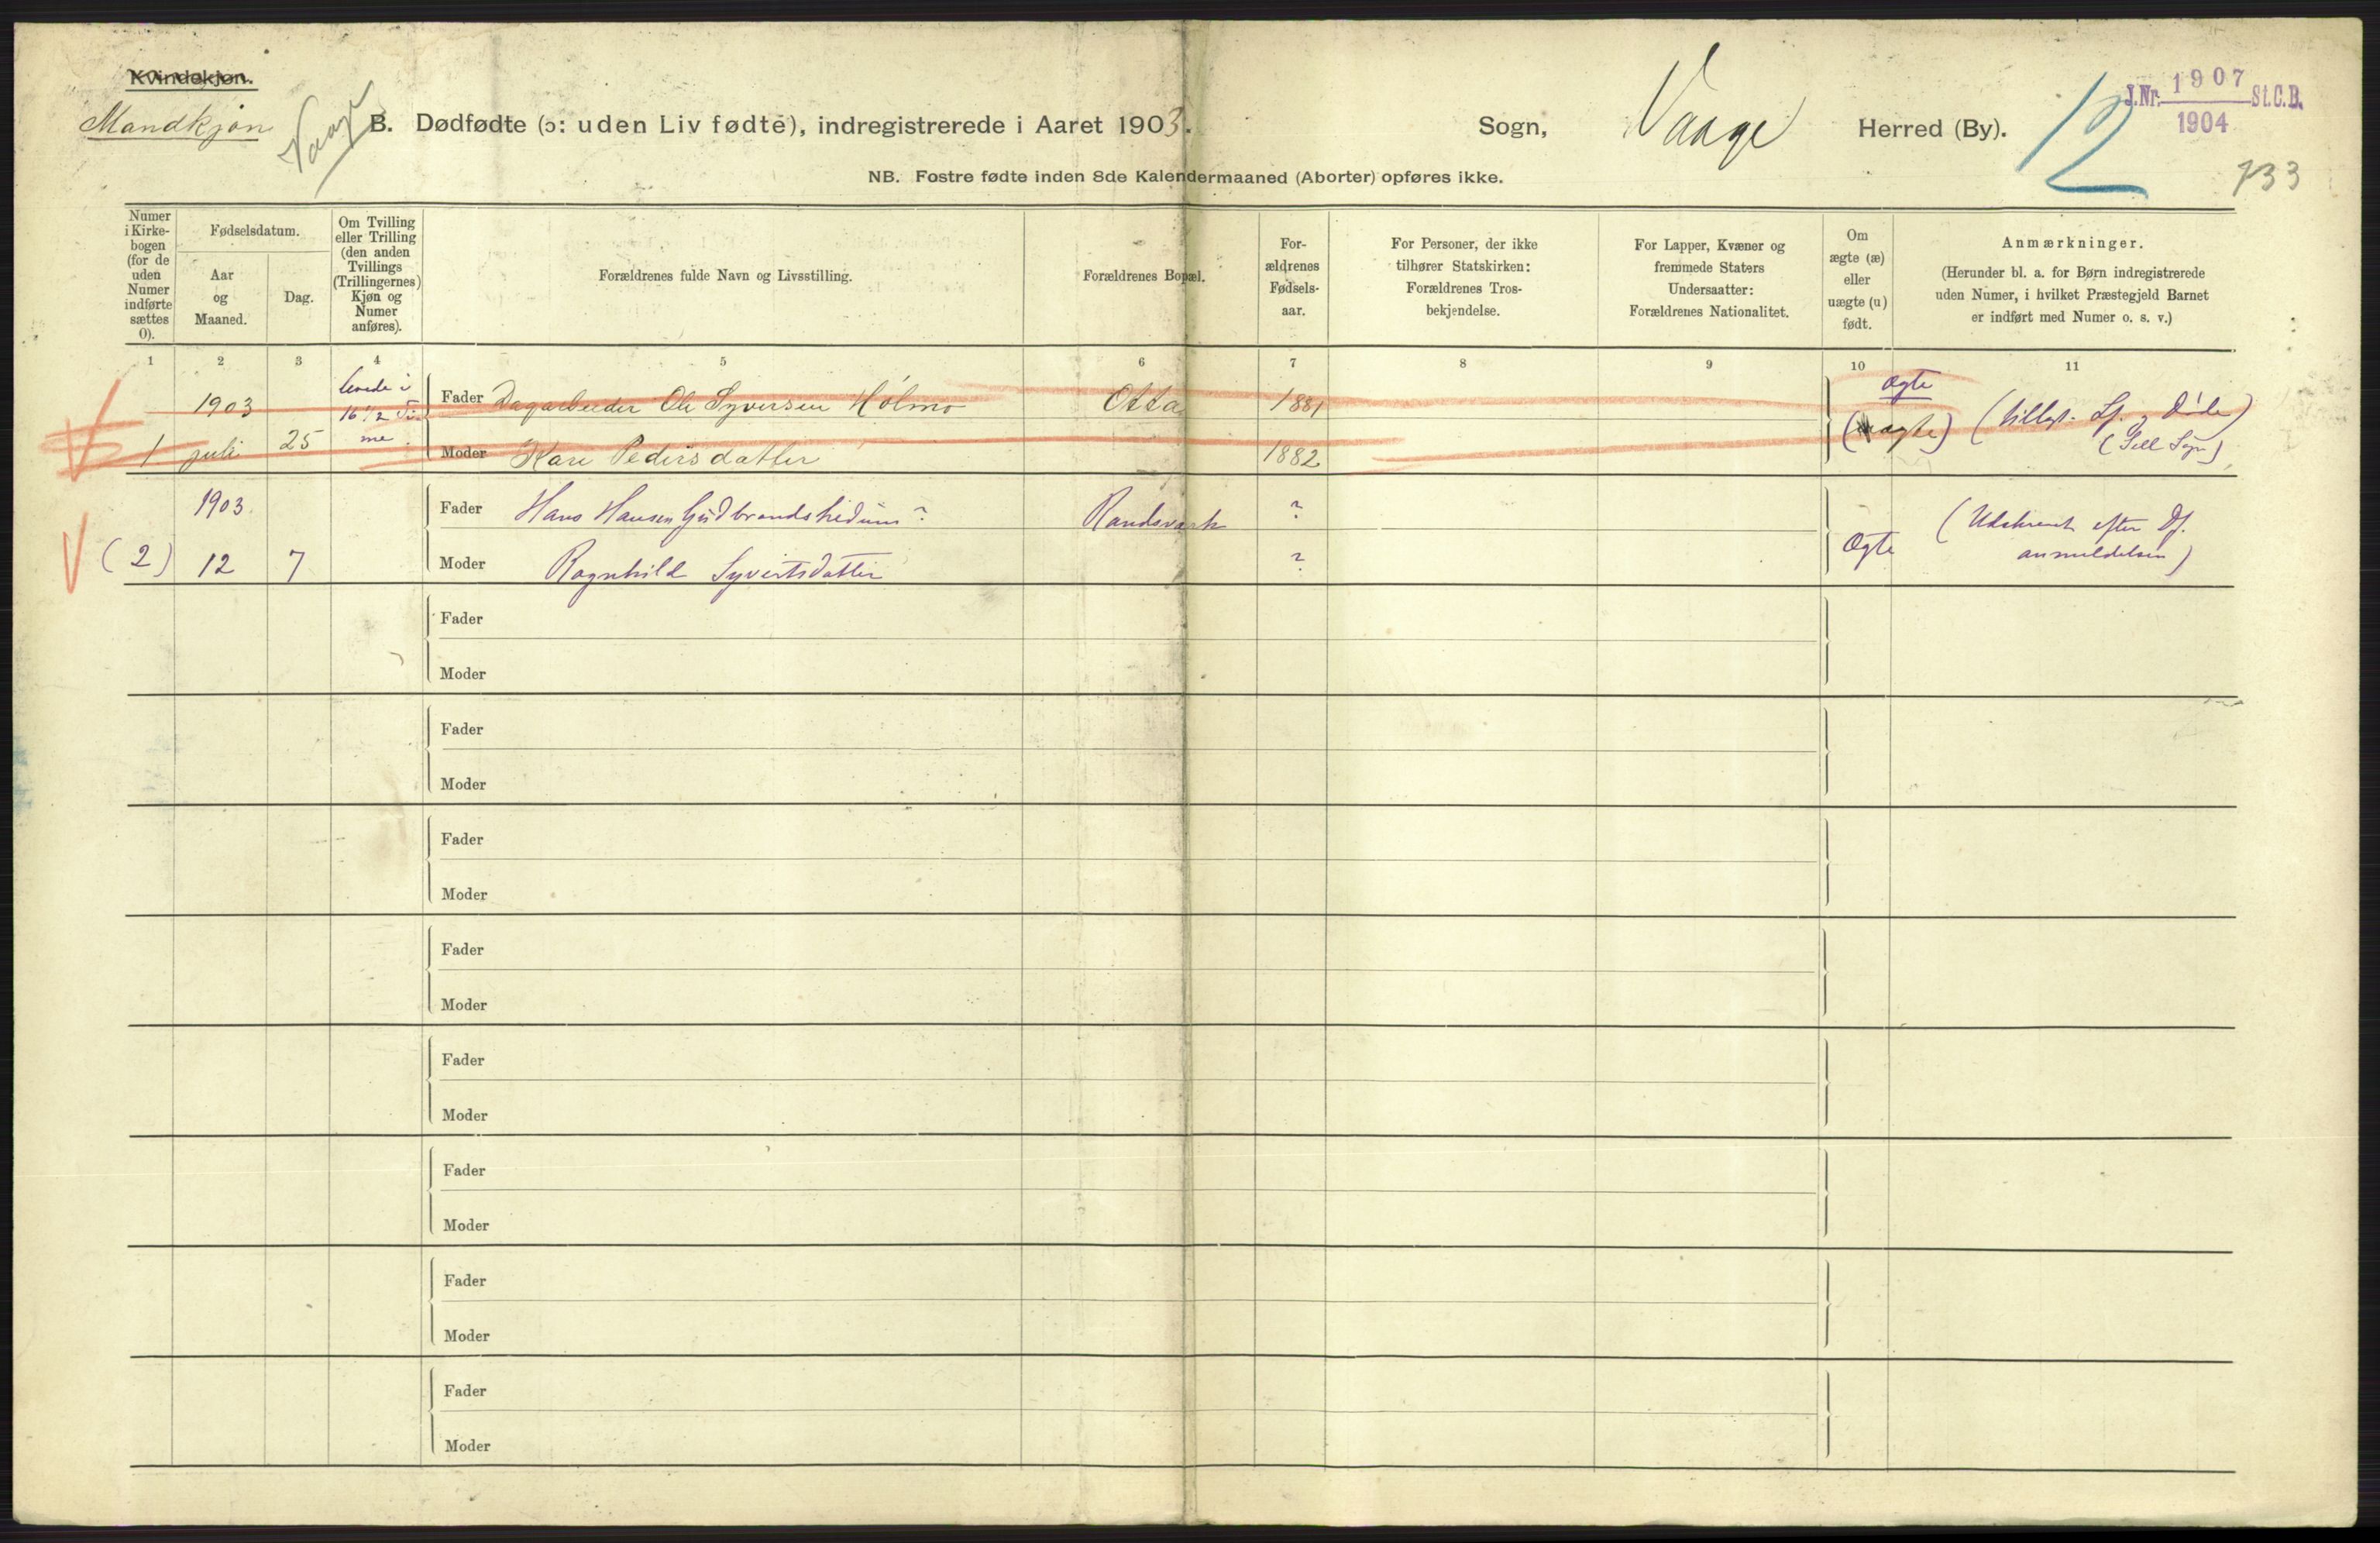 Kvindekjøn.
Mandkjøn
Vaage
B. Dødfødte (ɔ: uden Liv fødte), indregistrerede i Aaret 1903.
Sogn, Vaage Herred (By).
12
J.Nr. 1907 St.C.B.
1904
733
NB. Fostre fødte inden 8de Kalendermaaned (Aborter) opføres ikke.
Numer
i Kirke-
bogen
(for de
uden
Numer
indførte
sættes
0).
Fødselsdatum.
Aar
og
Maaned.
Dag.
Om Tvilling
eller Trilling
(den anden
Tvillings
(Trillingernes)
Kjøn og
Numer
anføres).
Forældrenes fulde Navn og Livsstilling.
Forældrenes Bopæl.
For-
ældrenes
Fødsels-
aar.
For Personer, der ikke
tilhører Statskirken:
Forældrenes Tros-
bekjendelse.
For Lapper, Kvæner og
fremmede Staters
Undersaatter:
Forældrenes Nationalitet.
Om
ægte (æ)
eller
uægte (u)
født.
Anmærkninger.
(Herunder bl. a. for Børn indregistrerede
uden Numer, i hvilket Præstegjeld Barnet
er indført med Numer o. s. v.)
1 2 3 4 5 6 7 8 9 10 11
levede i
16 1/2 Ti-
me.
1903 Fader Dagarbeider Ole Syversen Holmo Otta 1881 Ægte
1 juli 25 Moder Kari Pedersdatter 1882 (uægte)
1903 Fader Hans Hansen Gudbrandshedum? Randsverk ? (Udskrevet efter Df.
(2) 12 7 Moder Ragnhild Syvertsdatter ? Ægte anmeldelsen)
Fader
Moder
Fader
Moder
Fader
Moder
Fader
Moder
Fader
Moder
Fader
Moder
Fader
Moder
Fader
Moder